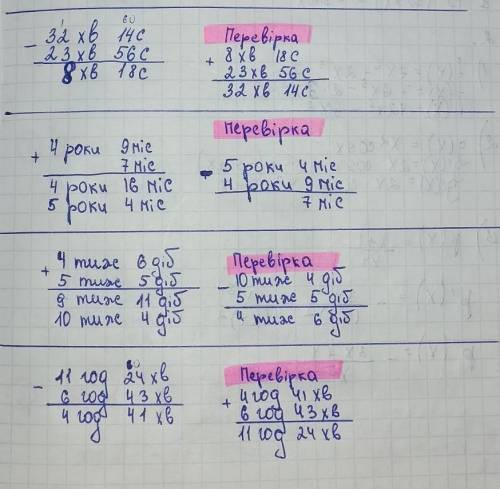 60
- 32 хв 14с
23хв 56с
8хв 18с
Перевірка
+ 8хв 18с
23хв 56с
32хв 14с
+ 4 роки 9міс
7міс
4 роки 16 міс
5 роки 4 міс
Перевірка
- 5 роки 4 міс
4 роки 9 міс
7 міс
+ 4 тиже 6 діб
5 тиже 5 діб
9 тиже 11 діб
10 тиже 4 діб
Перевірка
- 10 тиже 4 діб
5 тиже 5 діб
4 тиже 6 діб
60
- 11 год 24 хв
6 год 43 хв
4 год 41 хв
Перевірка
+ 4 год 41 хв
6 год 43 хв
11 год 24 хв